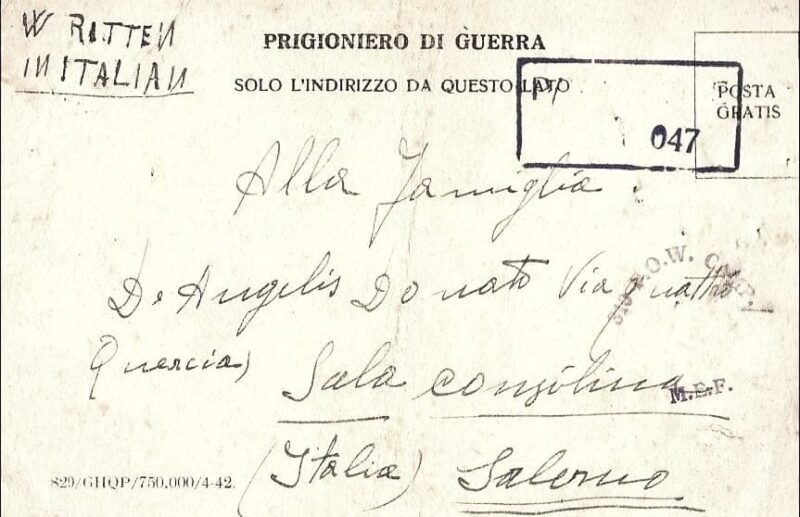 WRITTEN
IN ITALIAN
PRIGIONIERO DI GUERRA
SOLO L'INDIRIZZO DA QUESTO LATO
POSTA
GRATIS
P/
047
Alla Famiglia
De Angelis Donato Via Quattro
Quercia)
Sala Consilina
(Italia) Salerno
P.O.W. CAMP.
M.E.F.
829/GHQP/750,000/4-42.